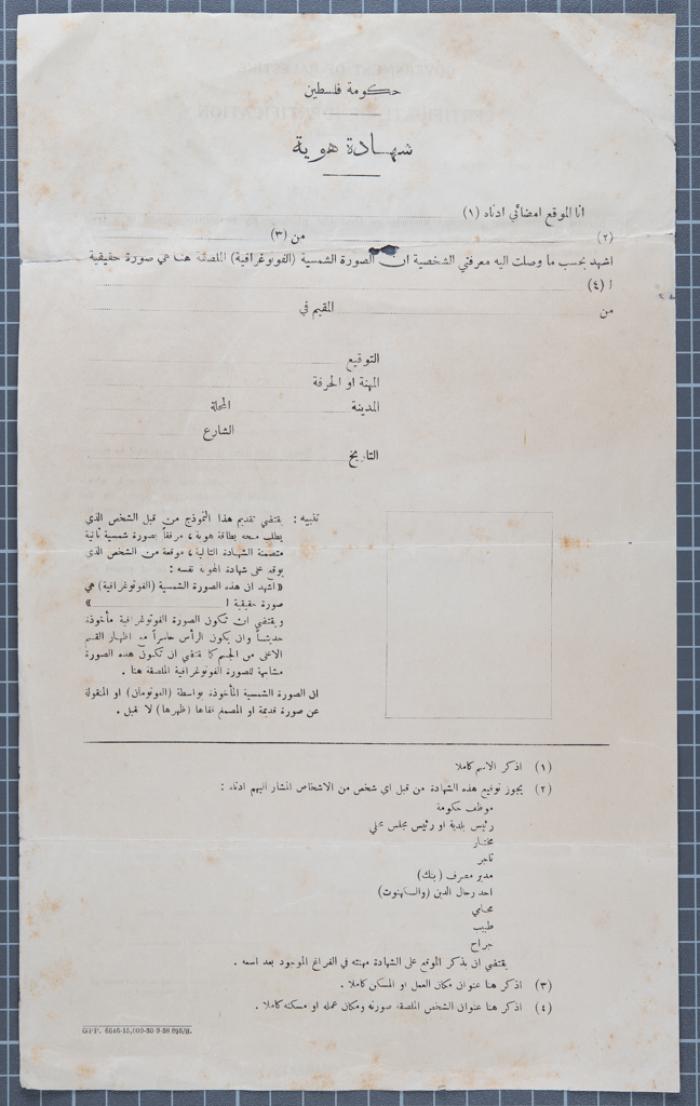 حكومة فلسطين
شهادة هوية
انا الموقع امضائي ادناه (١)
(٢) من (٣)
اشهد بحسب ما وصلت اليه معرفتي الشخصية ان الصورة الشمسية (الفوتوغرافية) الملصقة هنا هي صورة حقيقية
ا (٤)
من المقيم في
التوقيع
المهنة او الحرفة
المدينة المحلة
الشارع
التاريخ
تنبيه : يقتضي تقديم هذا النموذج من قبل الشخص الذي
يطلب منحه بطاقة هوية ، مرفقاً بصورة شمسية ثانية
متضمنة الشهادة التالية ، موقعة من الشخص الذي
يوقع على شهادة الهوية نفسه :
« اشهد ان هذه الصورة الشمسية (الفوتوغرافية) هي
صورة حقيقية ا »
ويقتضي ان تكون الصورة الفوتوغرافية مأخوذة
حديثاً وان يكون الرأس حاسراً مع اظهار القسم
الاعلى من الجسم كما يقتضي ان تكون هذه الصورة
مشابهة للصورة الفوتوغرافية الملصقة هنا .
ان الصورة الشمسية المأخوذة بواسطة (الفوتوماتن) او المنقولة
عن صورة قديمة او المصمغ قفاها (ظهرها) لا تقبل .
(١) اذكر الاسم كاملا
(٢) يجوز توقيع هذه الشهادة من قبل اي شخص من الاشخاص المشار اليهم ادناه :
موظف حكومة
رئيس بلدية او رئيس مجلس محلي
مختار
تاجر
مدير مصرف (بنك)
احد رجال الدين (والكهنوت)
محامي
طبيب
جراح
يقتضي ان يذكر الموقع على الشهادة مهنته في الفراغ الموجود بعد اسمه .
(٣) اذكر هنا عنوان مكان العمل او المسكن كاملا .
(٤) اذكر هنا عنوان الشخص الملصقة صورته ومكان عمله او مسكنه كاملا .